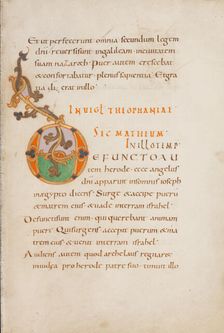 Et ut perfecerunt omnia secundum legem
dni reversi sunt in galileam in civitatem
suam nazareth. Puer autem crescebat
& confortabatur plenus sapientia. Et gra
tia di erat in illo.
IN VIGL THEOPHANIAE
SEC MATHEUM.
IN ILLO TEMP
DEFUNCTO AU
tem herode. ecce angelus
dni apparuit in somnis ioseph
in ęgypto dicens. Surge & accipe puerũ
& matrem eius & vade in terram israhel.
Defuncti sunt enim. qui querebant animam
pueri. Qui surgens accepit puerum & ma
trem eius & venit in terram israhel.
Audiens autem quod archelaus regnar&
in iudea pro herode patre suo. timuit illo